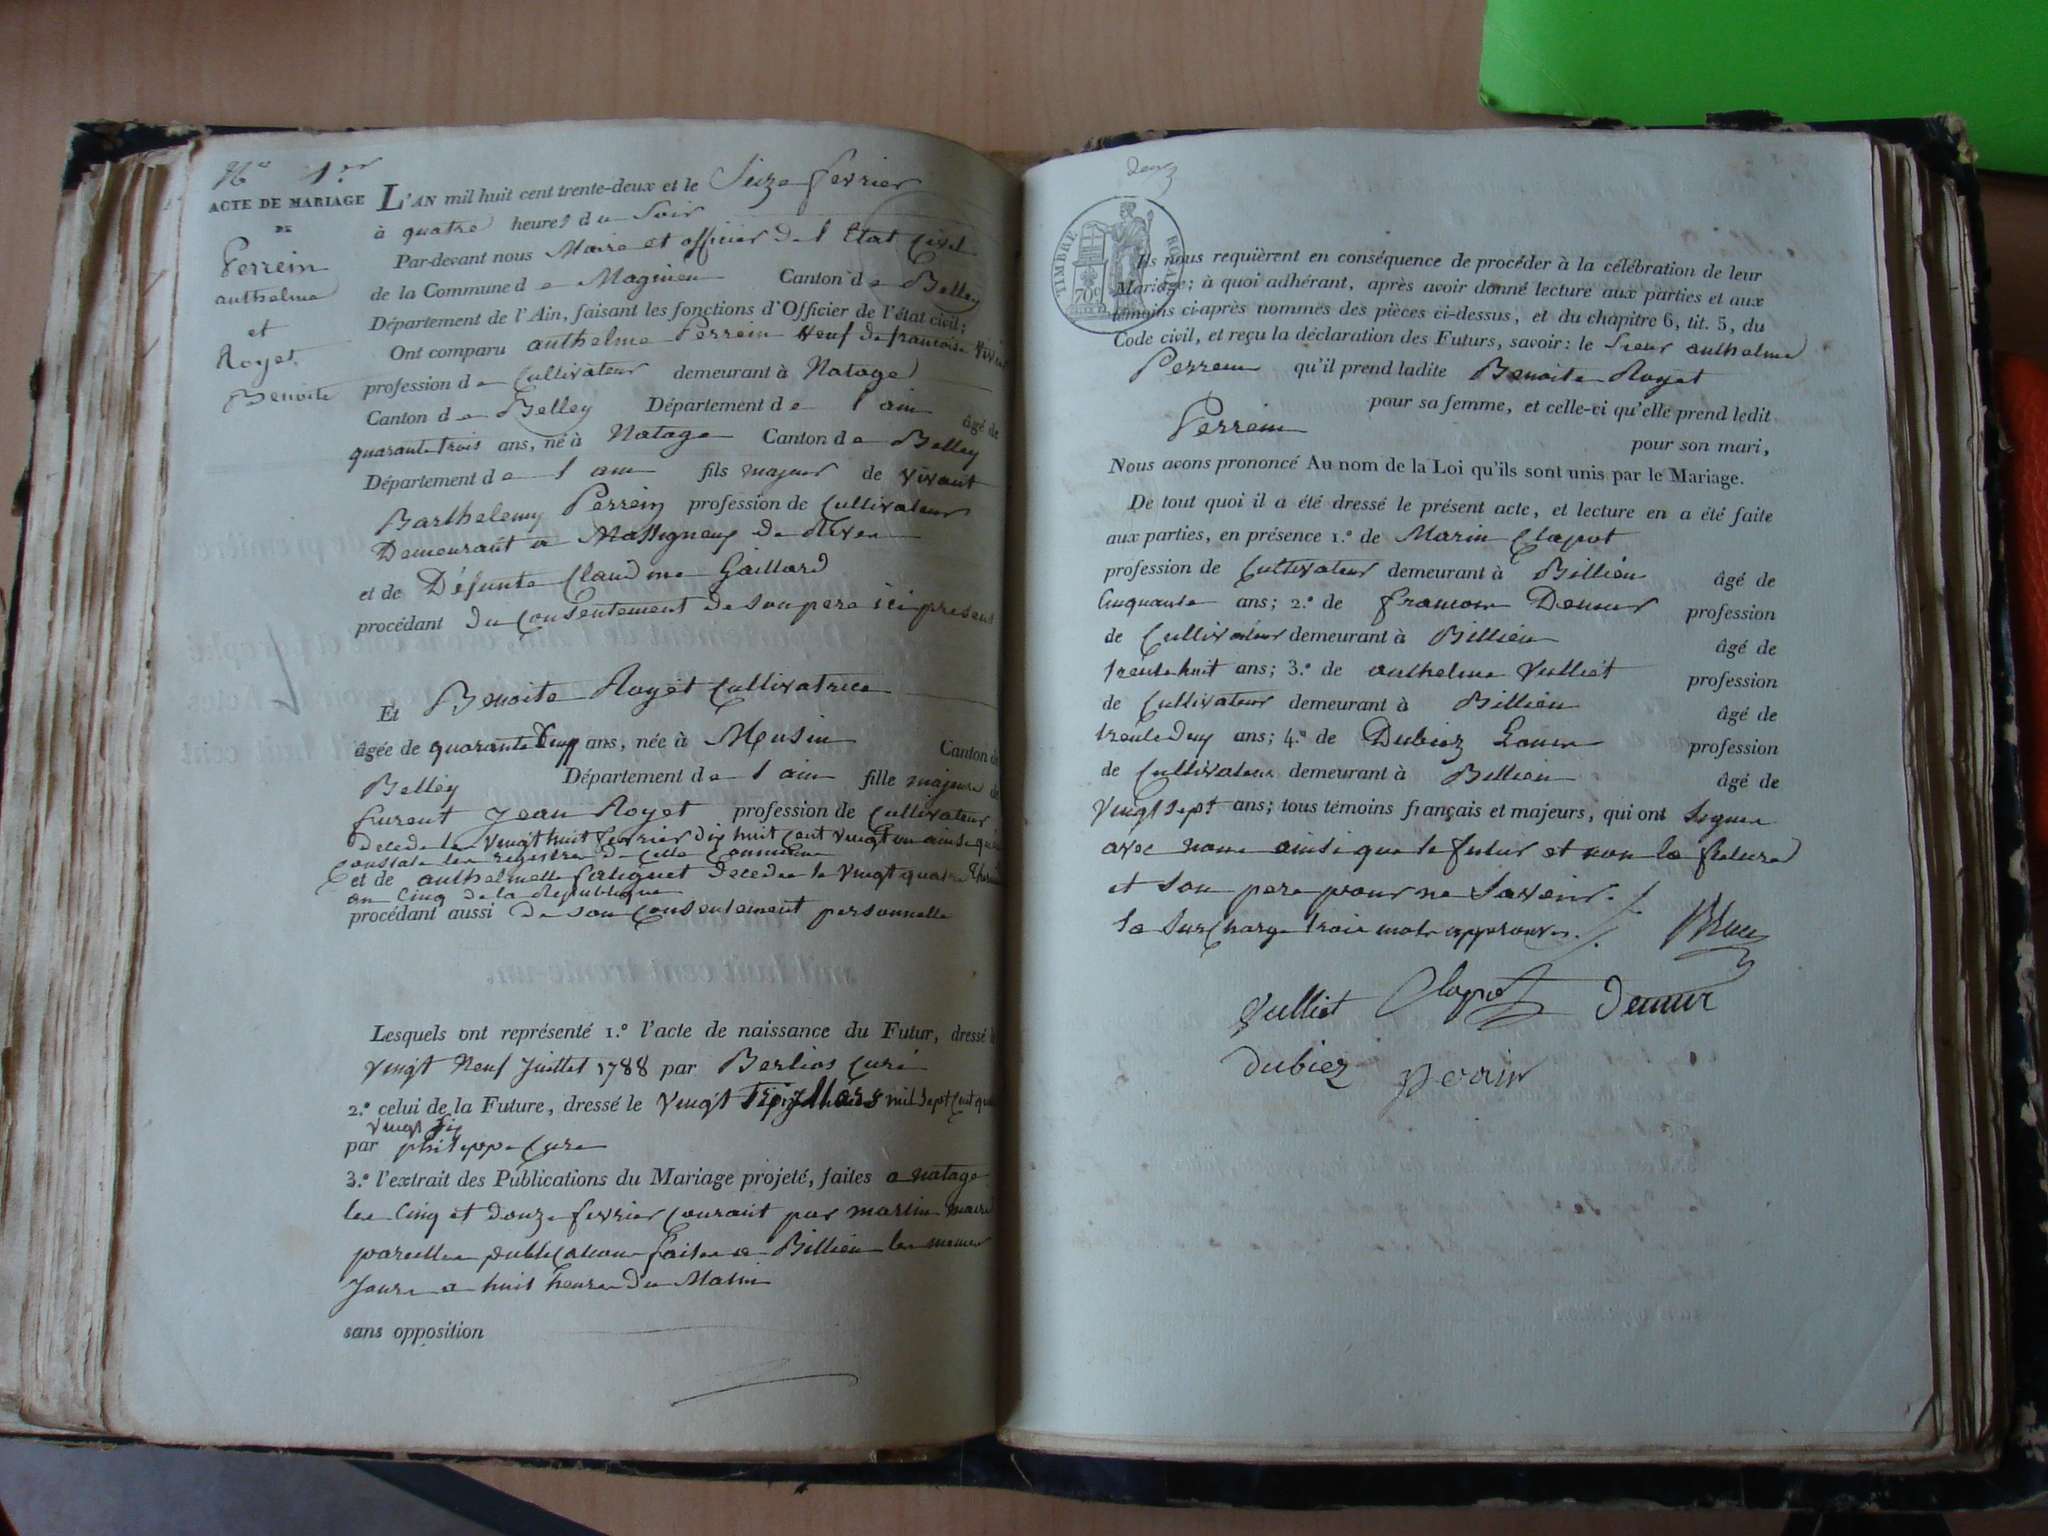 N° 1er
ACTE DE MARIAGE
DE
Perrein
anthelme
et
Royet
Benoite
L'AN mil huit cent trente-deux et le Seize fevrier
à quatre heures du Soir
Par-devant nous Maire et officier de l'Etat Civil
de la Commune de Magnieu Canton de Belley
Département de l'Ain, faisant les fonctions d'Officier de l'état civil;
Ont comparu anthelme Perrein veuf de francoise
profession de Cultivateur demeurant à Natage
Canton de Belley Département de l'ain âgé de
quarante trois ans, né à Natage Canton de Belley
Département de l'ain fils majeur de vivant
Barthelemy Perrein profession de Cultivateur
Demeurant a Massigneux de Rives
et de Défunte Claudine Gaillard
procédant du Consentement de son pere ici present
Et Benoite Royet Cultivatrice
âgée de quarante Deux ans, née à Musin Canton de
Belley Département de l'ain fille majeure de
furent Jean Royet profession de Cultivateur
Decede le vingt huit fevrier dix huit cent vingt un ainsi que
Constate les registres de cette Commune
et de anthelmette decedee le vingt quatre
an Cinq de la Republique
procédant aussi de son Consentement personnelle
Lesquels ont représenté 1.° l'acte de naissance du Futur, dressé le
vingt Neuf Juillet 1788 par Berlios Curé
2.° celui de la Future, dressé le vingt Mars mil Sept Cent quatre
vingt Dix
par philippe Cure
3.° l'extrait des Publications du Mariage projeté, faites a natage
les Cinq et douze fevrier Courant par martin maire
pareilles publications faites a Billieu les memes
Jours a huit heures du Matin
sans opposition
deux
TIMBRE ROYAL
70c
Ils nous requièrent en conséquence de procéder à la célébration de leur
Mariage; à quoi adhérant, après avoir donné lecture aux parties et aux
témoins ci-après nommés des pièces ci-dessus, et du chapitre 6, tit. 5, du
Code civil, et reçu la déclaration des Futurs, savoir: le Sieur anthelme
Perrein qu'il prend ladite Benoite Royet
pour sa femme, et celle-ci qu'elle prend ledit
Perrein
pour son mari,
Nous avons prononcé Au nom de la Loi qu'ils sont unis par le Mariage.
De tout quoi il a été dressé le présent acte, et lecture en a été faite
aux parties, en présence 1.° de Marin Clapot
profession de Cultivateur demeurant à Billieu âgé de
Cinquante ans; 2.° de francois Demur profession
de Cultivateur demeurant à Billieu âgé de
trente huit ans; 3.° de anthelme Vulliet profession
de Cultivateur demeurant à Billieu âgé de
trente deux ans; 4.° de Dubiez Louis profession
de Cultivateur demeurant à Billieu âgé de
vingt sept ans; tous témoins français et majeurs, qui ont Signé
avec nous ainsi que le futur et non la future
et son pere pour ne Savoir.
la Surcharge trois mots approuvés.
Vulliet Clapot Demur
dubiez perrin